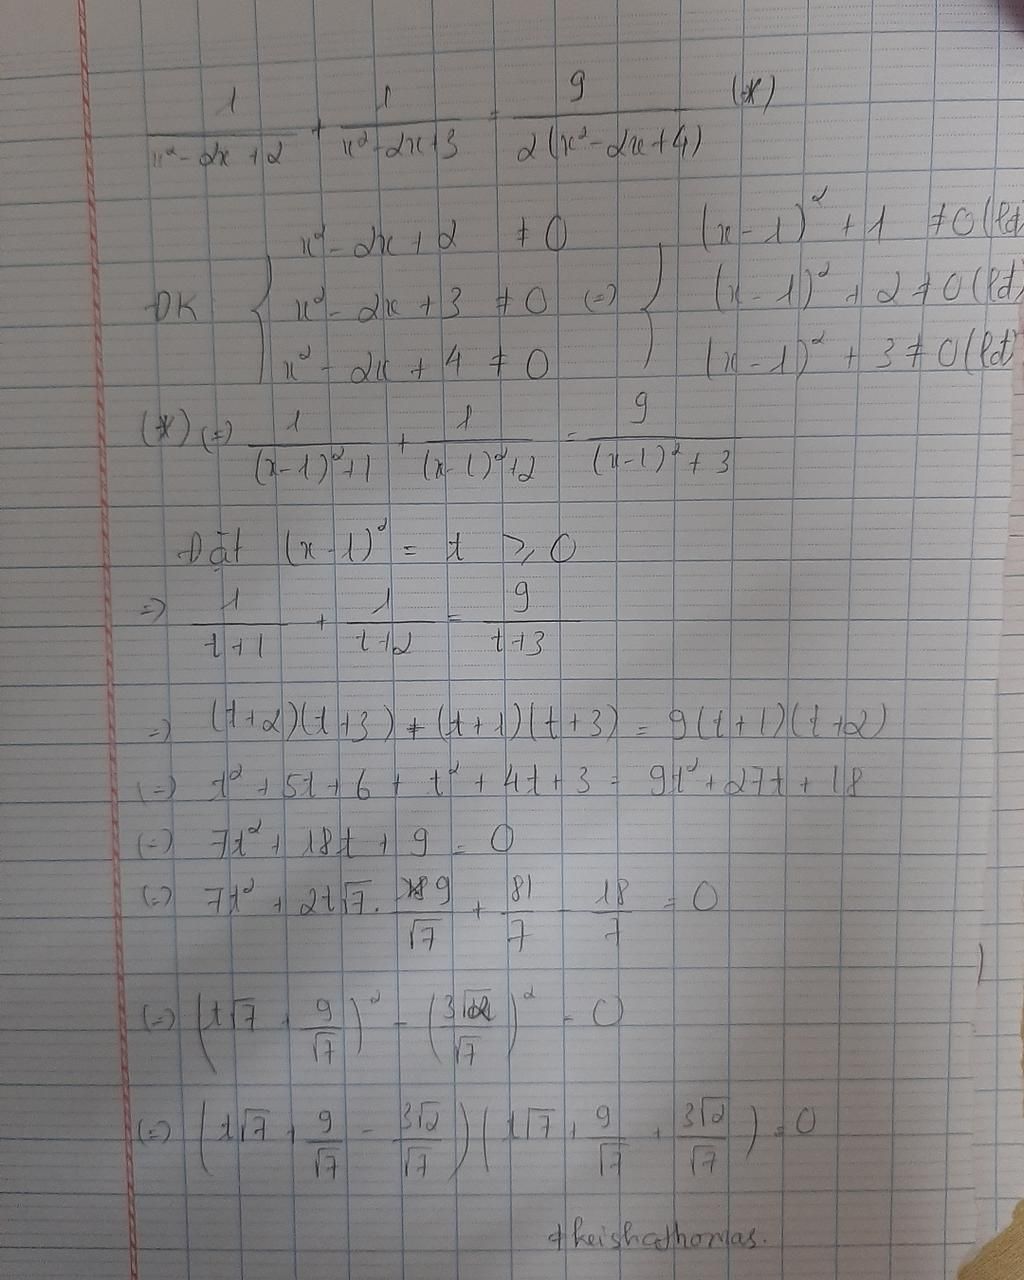 1/(x² - 2x + 2) + 1/(x² - 2x + 3) = 9/(2(x² - 2x + 4)) (*)
x² - 2x + 2 ≠ 0 (x - 1)² + 1 ≠ 0 (lđ)
ĐK { x² - 2x + 3 ≠ 0 (=) } (x - 1)² + 2 ≠ 0 (lđ)
x² - 2x + 4 ≠ 0 (x - 1)² + 3 ≠ 0 (lđ)
(*) (=) 1/((x-1)² + 1) + 1/((x-1)² + 2) = 9/((x-1)² + 3)
Đặt (x - 1)² = t ≥ 0
=) 1/(t+1) + 1/(t+2) = 9/(t+3)
=) (t+2)(t+3) + (t+1)(t+3) = 9(t+1)(t+2)
(=) t² + 5t + 6 + t² + 4t + 3 = 9t² + 27t + 18
(=) 7t² + 18t + 9 = 0
(=) 7t² + 2t√7 . 9/√7 + 81/7 - 18/7 = 0
(=) (t√7 + 9/√7)² - (3√2/√7)² = 0
(=) (t√7 + 9/√7 - 3√2/√7)(t√7 + 9/√7 + 3√2/√7) = 0
#keishathomas.